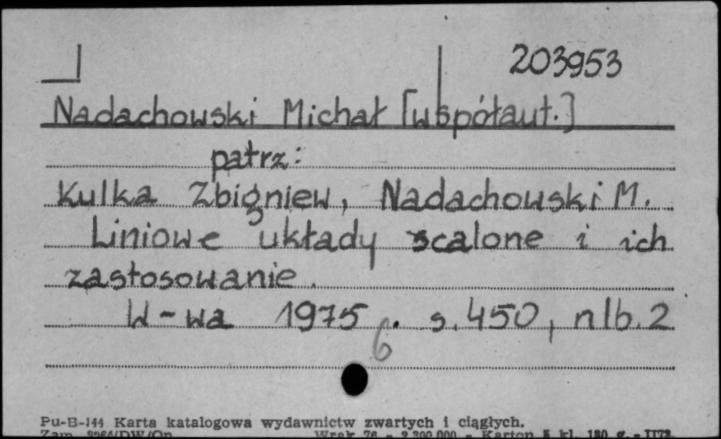 203953
Nadachowski Michał [współaut.]
patrz:
Kulka Zbigniew, Nadachowski M.
Liniowe układy scalone i ich
zastosowanie.
W-wa 1975. s. 450, nlb. 2
6
Pu-B-144 Karta katalogowa wydawnictw zwartych i ciągłych.
Zam. Wrak 76 - 2.200.000 - Karton 5 kl. 180 g.